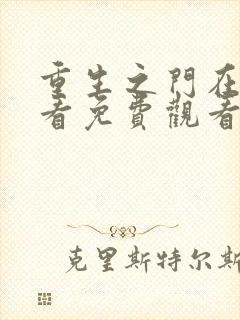 重生之門在
看免費觀看
克里斯特尔斯